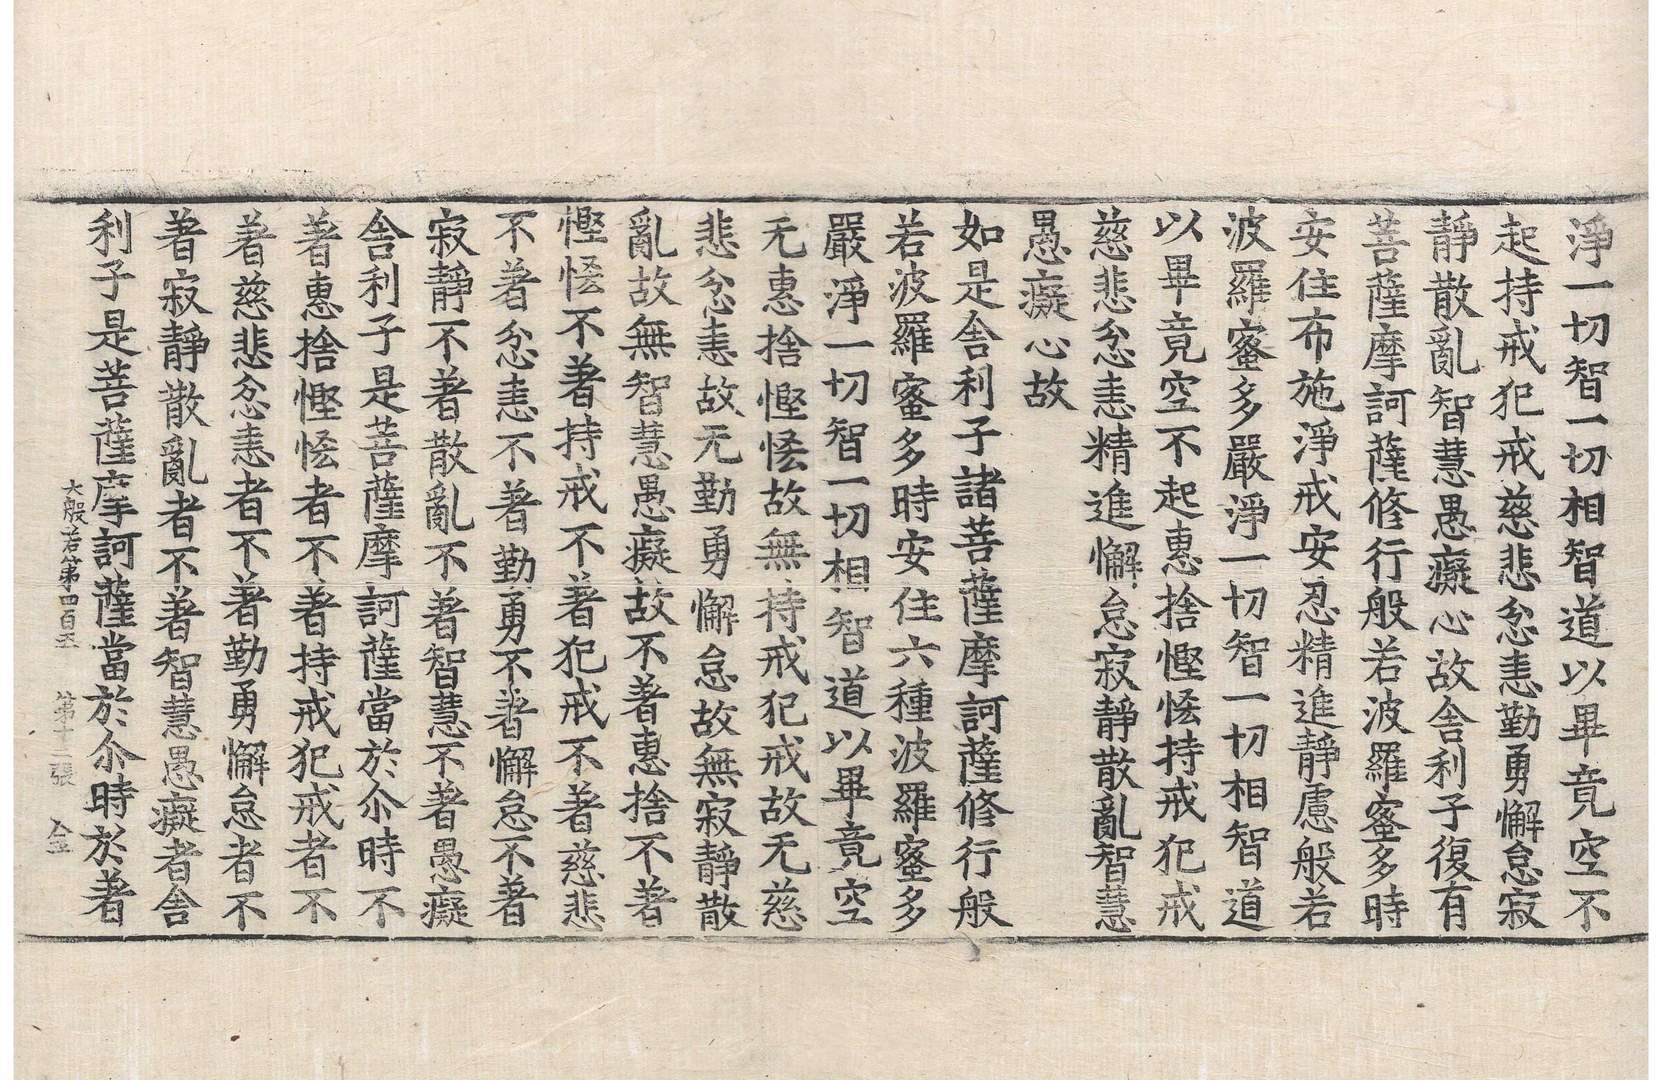 淨一切智一切相智道以畢竟空不
起持戒犯戒慈悲忿恚勤勇懈怠寂
靜散亂智慧愚癡心故舍利子復有
菩薩摩訶薩修行般若波羅蜜多時
安住布施淨戒安忍精進靜慮般若
波羅蜜多嚴淨一切智一切相智道
以畢竟空不起惠捨慳悋持戒犯戒
慈悲忿恚精進懈怠寂靜散亂智慧
愚癡心故
如是舍利子諸菩薩摩訶薩修行般
若波羅蜜多時安住六種波羅蜜多
嚴淨一切智一切相智道以畢竟空
无惠捨慳恡故無持戒犯戒故无慈
悲忿恚故无勤勇懈怠故無寂靜散
亂故無智慧愚癡故不著惠捨不著
慳恡不著持戒不著犯戒不著慈悲
不著忿恚不著勤勇不著懈怠不著
寂靜不著散亂不著智慧不著愚癡
舍利子是菩薩摩訶薩當於尒時不
著惠捨慳恡者不著持戒犯戒者不
著慈悲忿恚者不著勤勇懈怠者不
著寂靜散亂者不著智慧愚癡者舍
利子是菩薩摩訶薩當於尒時於著
大般若第四百五　第十二張　金